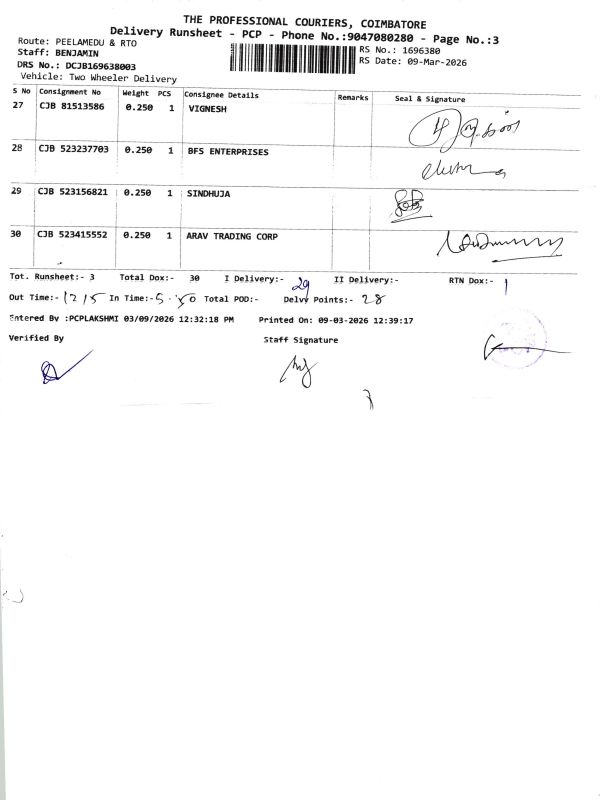 THE PROFESSIONAL COURIERS, COIMBATORE
Delivery Runsheet - PCP - Phone No.:9047080280 - Page No.:3
Route: PEELAMEDU & RTO
RS No.: 1696380
Staff: BENJAMIN
RS Date: 09-Mar-2026
DRS No.: DCJB169638003
Vehicle: Two Wheeler Delivery
S No Consignment No Weight PCS Consignee Details Remarks Seal & Signature
27 CJB 81513586 0.250 1 VIGNESH
28 CJB 523237703 0.250 1 BFS ENTERPRISES
29 CJB 523156821 0.250 1 SINDHUJA
30 CJB 523415552 0.250 1 ARAV TRADING CORP
Tot. Runsheet:- 3 Total Dox:- 30 I Delivery:- 29 II Delivery:- RTN Dox:- 1
Out Time:- 12 15 In Time:- 5.50 Total POD:- Delvy Points:- 28
Entered By :PCPLAKSHMI 03/09/2026 12:32:18 PM Printed On: 09-03-2026 12:39:17
Verified By Staff Signature